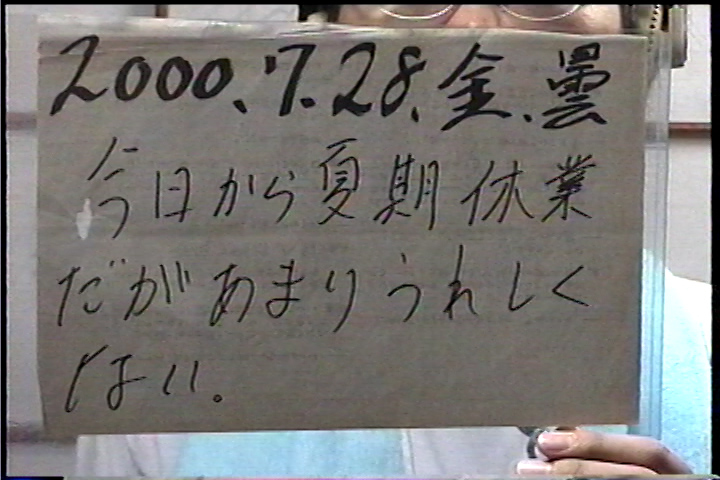 2000.7.28.金.曇
今日から夏期休業
だがあまりうれしく
ない。